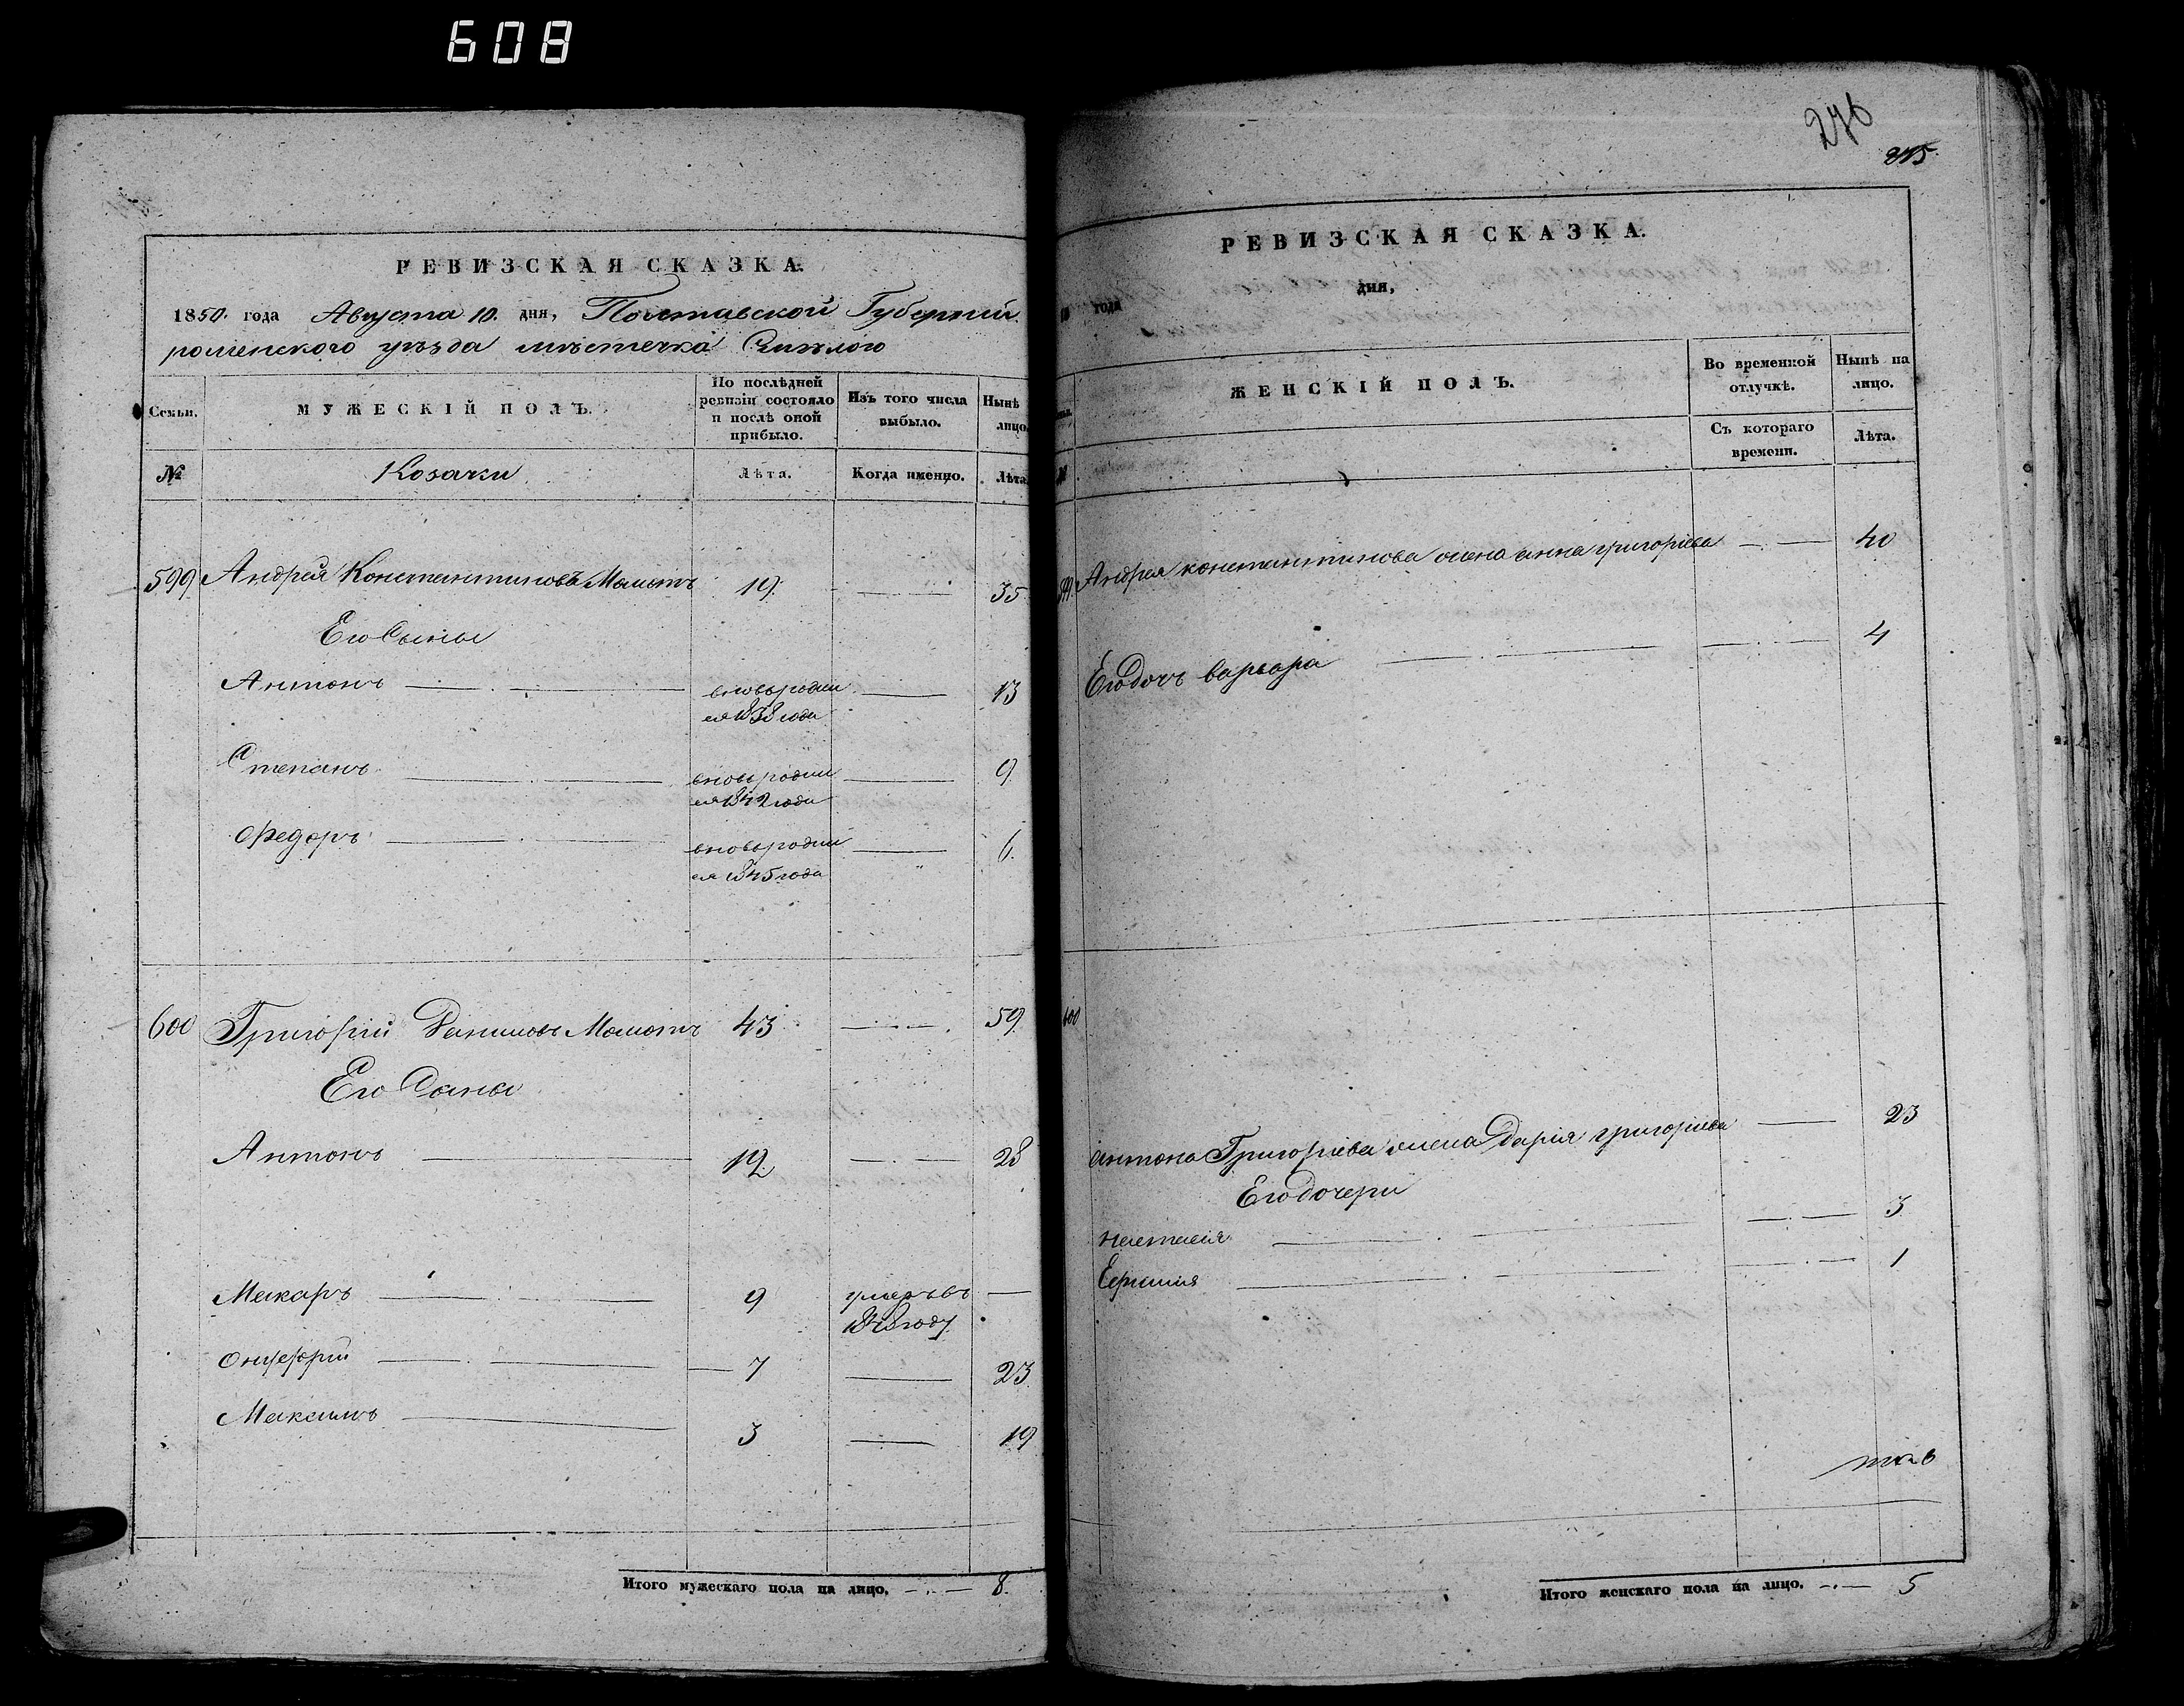 608
276
РЕВИЗСКАЯ СКАЗКА.
1850. года Августа 10. дня, Полтавской Губернии
роменского уѣзда мѣстечка Смѣлого
Семьи.
МУЖЕСКІЙ ПОЛЪ.
По послѣдней ревизіи состояло и послѣ оной прибыло.
Изъ того числа выбыло.
Нынѣ лицо
№
Козачки
Лѣта.
Когда именно.
Лѣта
599 Андрей Константиновъ Момотъ 19. 35
Его Сыны
Антонъ вновьродил 13
ся 1838 года
Степанъ вновьродил 9
ся 1842 года
Федоръ вновьродил 6.
ся 1845 года
600 Григорій Даниловъ Момотъ 43 59
Его Сыны
Антонъ 12 28
Макаръ 9 умеръвъ
1848 году
Онуфрій 7 23
Максимъ 3 19
Итого мужескаго пола на лицо. 8.
РЕВИЗСКАЯ СКАЗКА.
года дня,
ЖЕНСКІЙ ПОЛЪ.
Во временной отлучкѣ.
Нынѣ на лицо.
Съ котораго времени.
Лѣта.
599. Андрея константинова жена анна григорьева 40
Егодочь варвара 4
600
антона Григорьева жена Дарія григорьева 23
Егодочери
настасія 3
Ефимія 1
Итого женскаго пола на лицо. 5